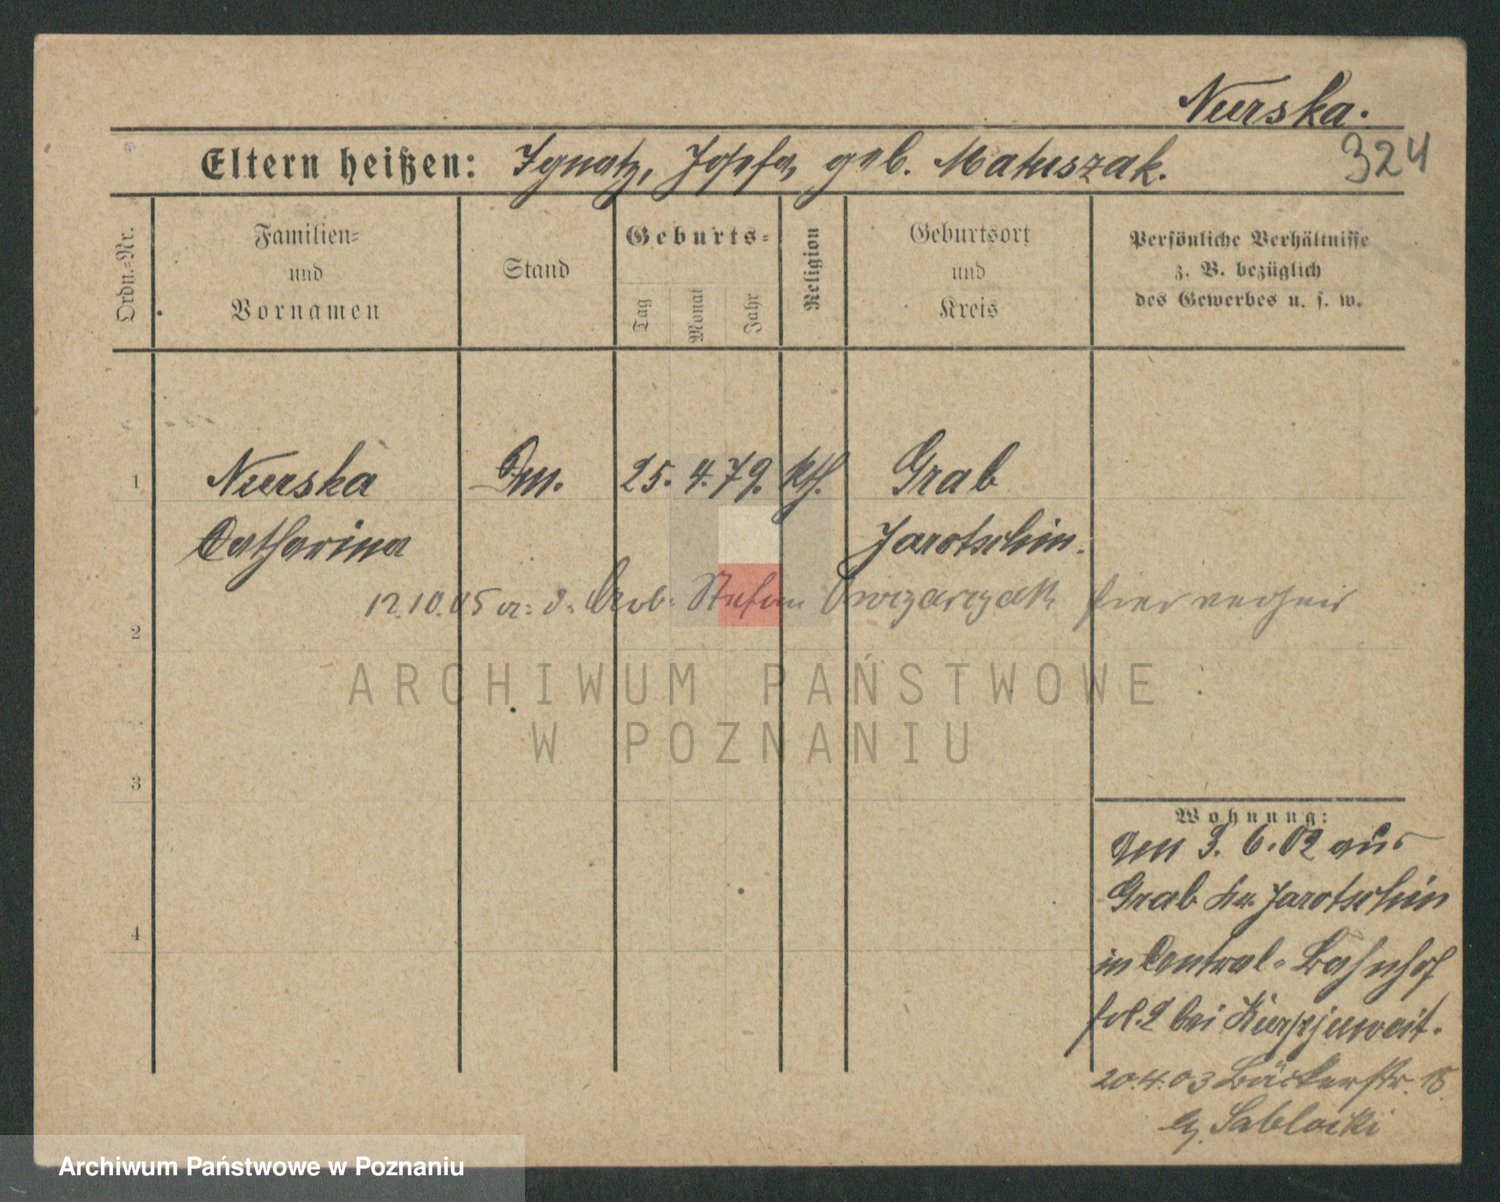 Nurska.
324
Eltern heißen: Ignatz, Josefa geb. Matuszak.
Ordn.-Nr.
Familien-
und
Vornamen
Stand
Geburts-
Tag
Monat
Jahr
Religion
Geburtsort
und
Kreis
Persönliche Verhältnisse
z. B. bezüglich
des Gewerbes u. s. w.
1
Nurska
Catharina
Dm.
25. 4. 79.
kth.
Grab
Jarotschin.
12.10.05 Arb. Stefan Owczarczak hier verheir
2
3
4
Wohnung:
Den 3. 6. 02 aus
Grab Kr. Jarotschin
in Central-Bahnhof
bei
20.4.03 Bäckerstr. 18
Sablocki
ARCHIWUM PAŃSTWOWE
W POZNANIU
Archiwum Państwowe w Poznaniu